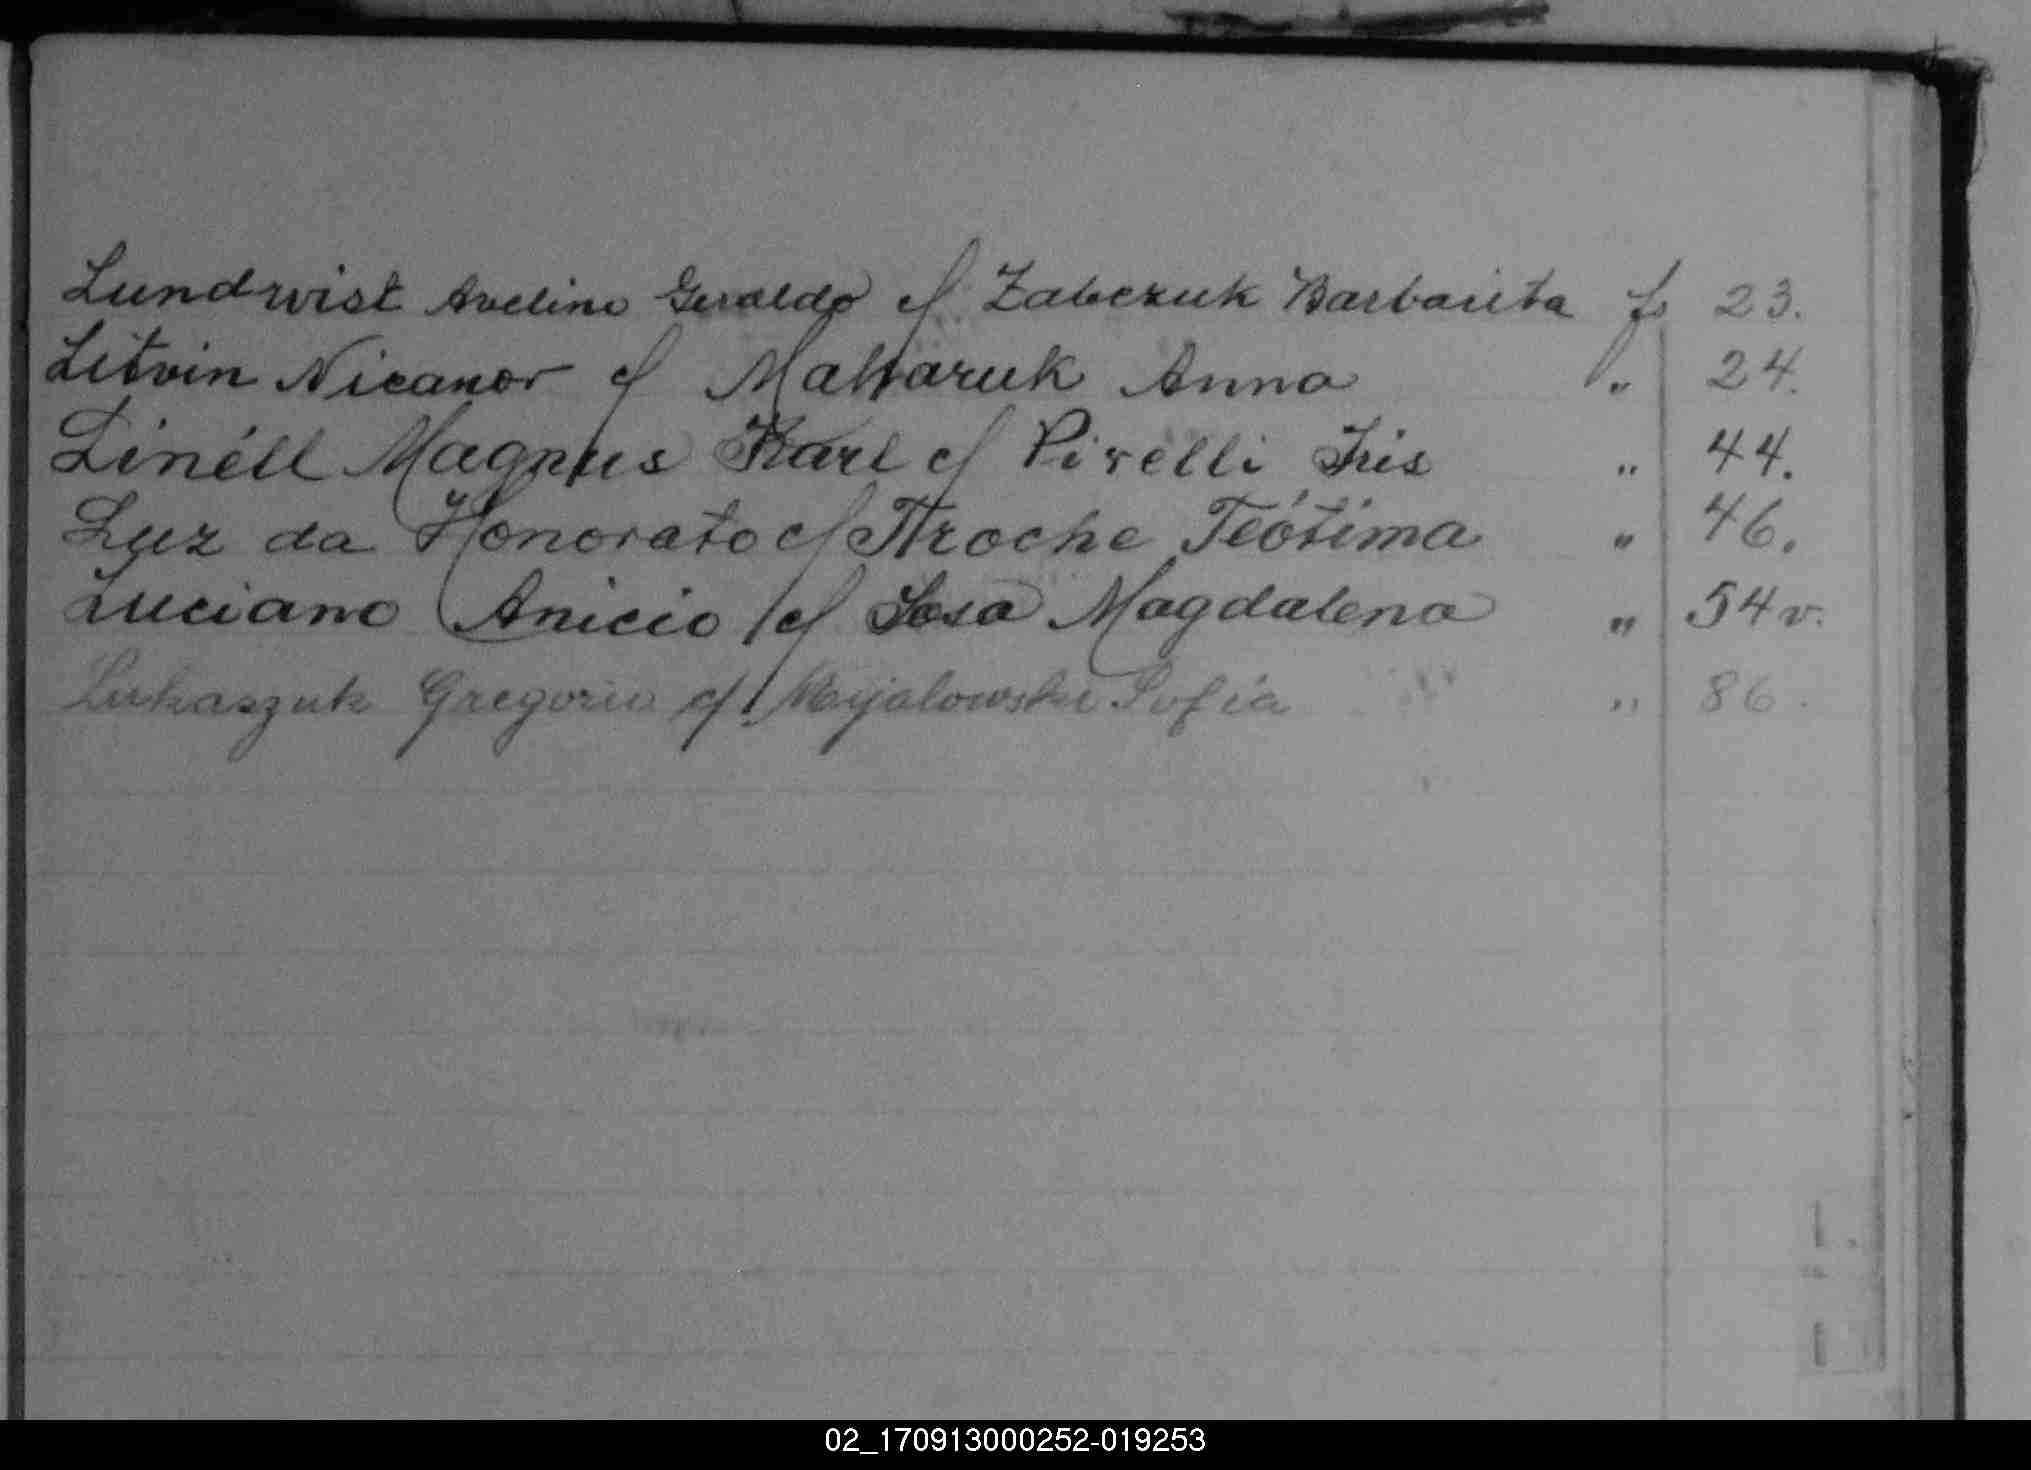 Lundqvist Avelino Geraldo c/ Zabczuk Barbarita fs 23.
Litvin Nicanor c/ Maharuk Anna " 24.
Linéll Magnus Karl c/ Pirelli Iris " 44.
Luz da Honorato c/ Troche Teótima " 46.
Luciano Anicio c/ Sosa Magdalena " 54 v.
Lukaszuk Gregorio c/ Sofía " 86.
02_170913000252-019253